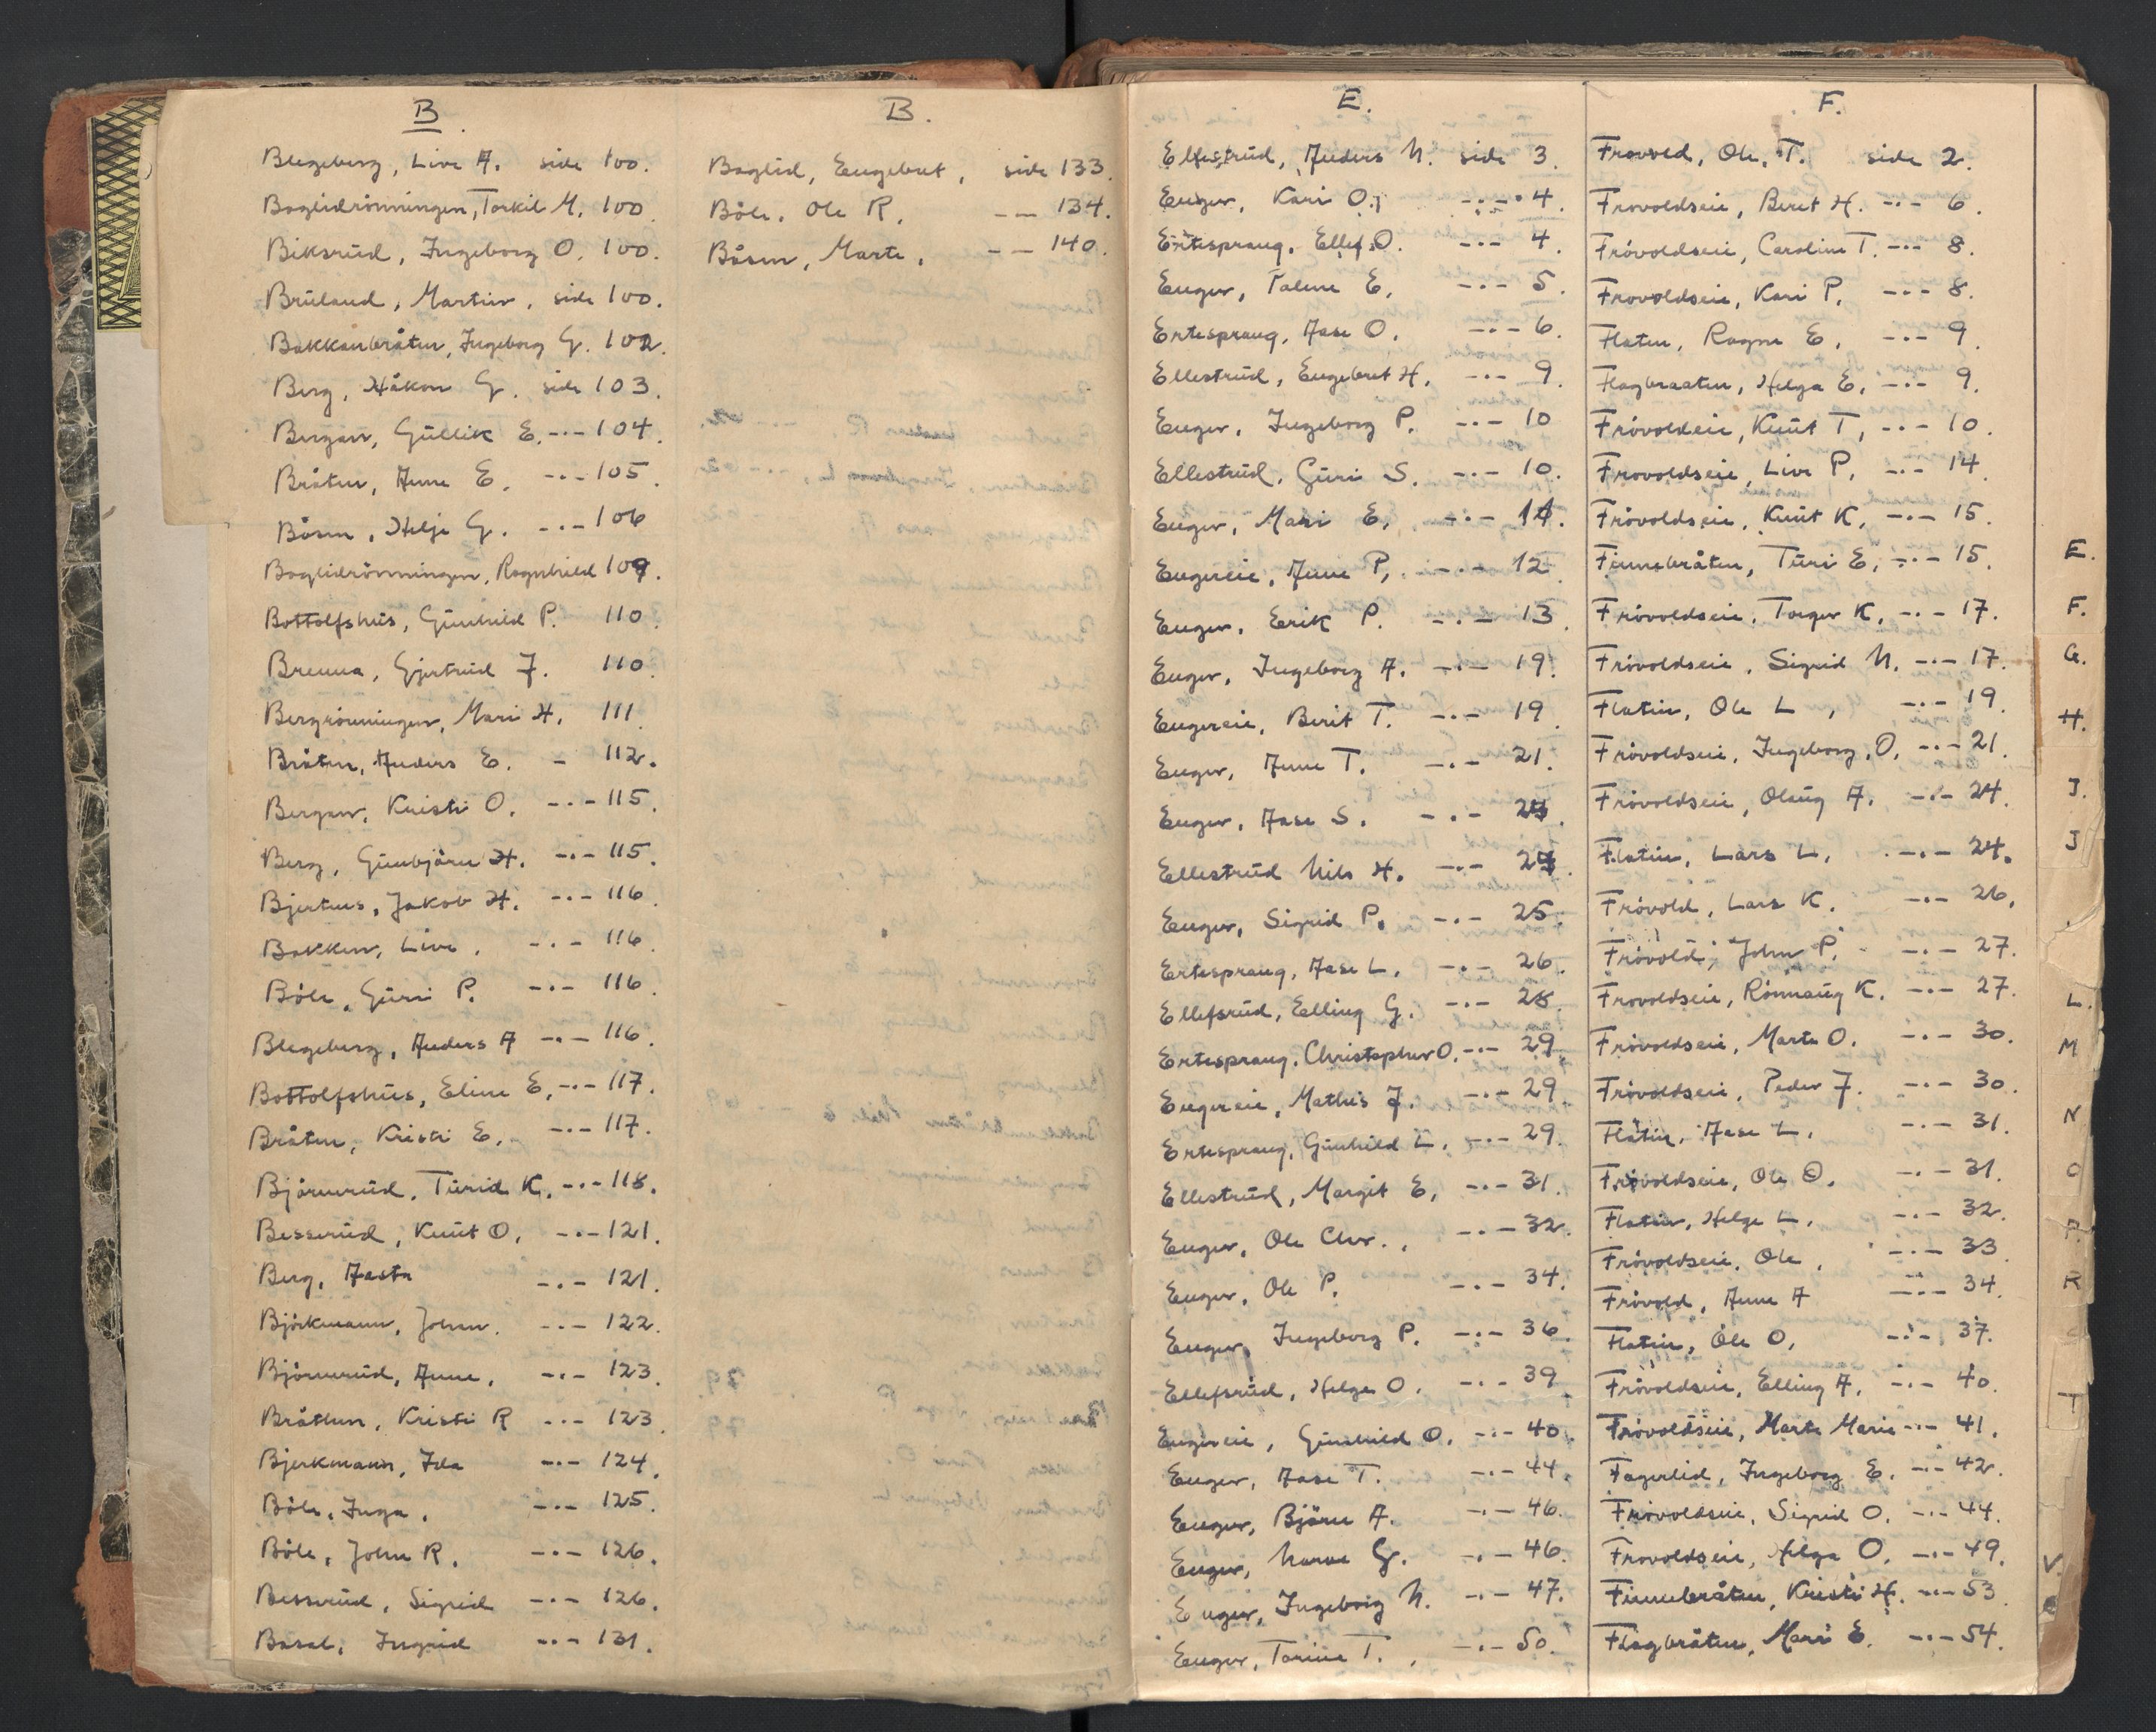 B.
Blegeberg, Live A. side 100.
Baglidrönningen, Torkil M. 100.
Biksrud, Ingeborg O. 100.
Bruland, Martin, side 100.
Bakkanbråten, Ingeborg G. 102.
Berg, Håkon G. side 103.
Bergan, Gullik E. -"- 104.
Bråten, Anne E. -"- 105.
Båsen, Helje G. -"- 106
Baglidrönningen, Ragnhild 109.
Bottolfshus, Gunhild P. 110.
Brenna, Gjertrud J. 110.
Bergrönningen, Mari H. 111.
Bråten, Anders E. - 112.
Bergan, Kristi O. -"- 115.
Berg, Gunbjörn H. -"- 115.
Bjertnes, Jakob H. -"- 116.
Bakken, Live, -"- 116.
Böle, Guri P. -"- 116.
Blegeberg, Anders A -"- 116.
Bottolfshus, Eline E. -"- 117.
Bråten, Kristi E. -"- 117.
Björnerud, Turid K. -"- 118.
Besserud, Knut O. -"- 121.
Berg, Aasta -"- 121.
Björkmann, Johan. -"- 122.
Björnerud, Anne, -"- 123.
Bråthen, Kristi R -"- 123.
Bjerkmann, Ida -"- 124.
Böle, Inga, -"- 125.
Böle, John R. -"- 126.
Besserud, Sigrid -"- 126.
Basal, Ingrid -"- 131.
B.
Baglid, Engebret, side 133.
Böle, Ole R. -- 134.
Båsen, Marte, -- 140.
E.
Ellestrud, Anders N. side 3.
Enger, Kari O. -"- 4.
Ertesprang, Ellef O. -"- 4.
Enger, Taline E. -"- 5.
Ertesprang, Aase O. -"- 6.
Ellestrud, Engebret H. -"- 9.
Enger, Ingeborg P. -"- 10
Ellestrud, Guri S. -"- 10.
Enger, Mari E. -"-
Engereie, Anne P. -"- 12
Enger, Erik P. -"- 13.
Enger, Ingeborg A. -"- 19.
Engereie, Berit T. -"- 19.
Enger, Anne T. -"- 21.
Enger, Aase S. -"-
Ellestrud Nils H. -"-
Enger, Sigrid P. -"- 25.
Ertesprang, Aase L. -"- 26.
Ellefsrud, Elling G. -"- 28.
Ertesprang, Christopher O. -"- 29.
Engereie, Mathis J. -"- 29.
Ertesprang, Gunhild L. -"- 29.
Ellestrud, Margit E. -"- 31.
Enger, Ole Chr. , -"- 32.
Enger, Ole P. -"- 34.
Enger, Ingeborg P. -"- 36.
Ellefsrud, Helge O. -"- 39
Engereie, Gunhild O. -"- 40.
Enger, Aase T. -"- 44.
Enger, Björn A. -"- 46.
Enger, Narve G. -"- 46.
Enger, Ingeborg N. -"- 47.
Enger, Torine T. , -"- 50.
F.
Frövold, Ole, T. side 2.
Frövoldseie, Berit H. -"- 6.
Frövoldseie, Caroline T. -"- 8.
Frövoldseie, Kari P. -"- 8.
Flaten, Ragne E. -"- 9.
Flagbraaten, Helga E. -"- 9.
Frövoldeie, Knut T, -"- 10.
Frövoldseie, Live P. -"- 14.
Frövoldseie, Knut K, -"- 15.
Finnebråten, Turi E, -"- 15.
Frövoldseie, Torger K. -"- 17.
Frövoldseie, Sigrid N. -"- 17.
Flatin, Ole L , -"- 19.
Frövoldseie, Ingeborg, O. -"- 21.
Frövoldseie, Olaug A. -"- 24.
Flatin, Lars L. -"- 24.
Frövold, Lars K. -"- 26.
Frövold, John P. -"- 27.
Frövoldseie, Rönnaug K. -"- 27.
Frövoldseie, Marte O. -"- 30.
Frövoldseie, Peder J. -"- 30.
Flatin, Aase L. -"- 31.
Frövoldseie, Ole O. -"- 31.
Flatin, Helge L. -"- 32.
Frövoldseie, Ole , -"- 33
Frövold, Anne A -"- 34.
Flatin, Ole O. -"- 37.
Frövoldseie, Elling A. -"- 40.
Frövoldseie, Marte Marie -"- 41.
Fagerlid, Ingeborg E. -"- 42.
Frövoldseie, Sigrid O. -"- 44.
Frövoldseie, Helga O. -"- 49.
Finnebråten, Kristi H. -"- 53.
Flagbråten, Mari E. -"- 54.
E.
F.
G.
H.
I.
J
L.
M
N
O
P.
R
T
V.